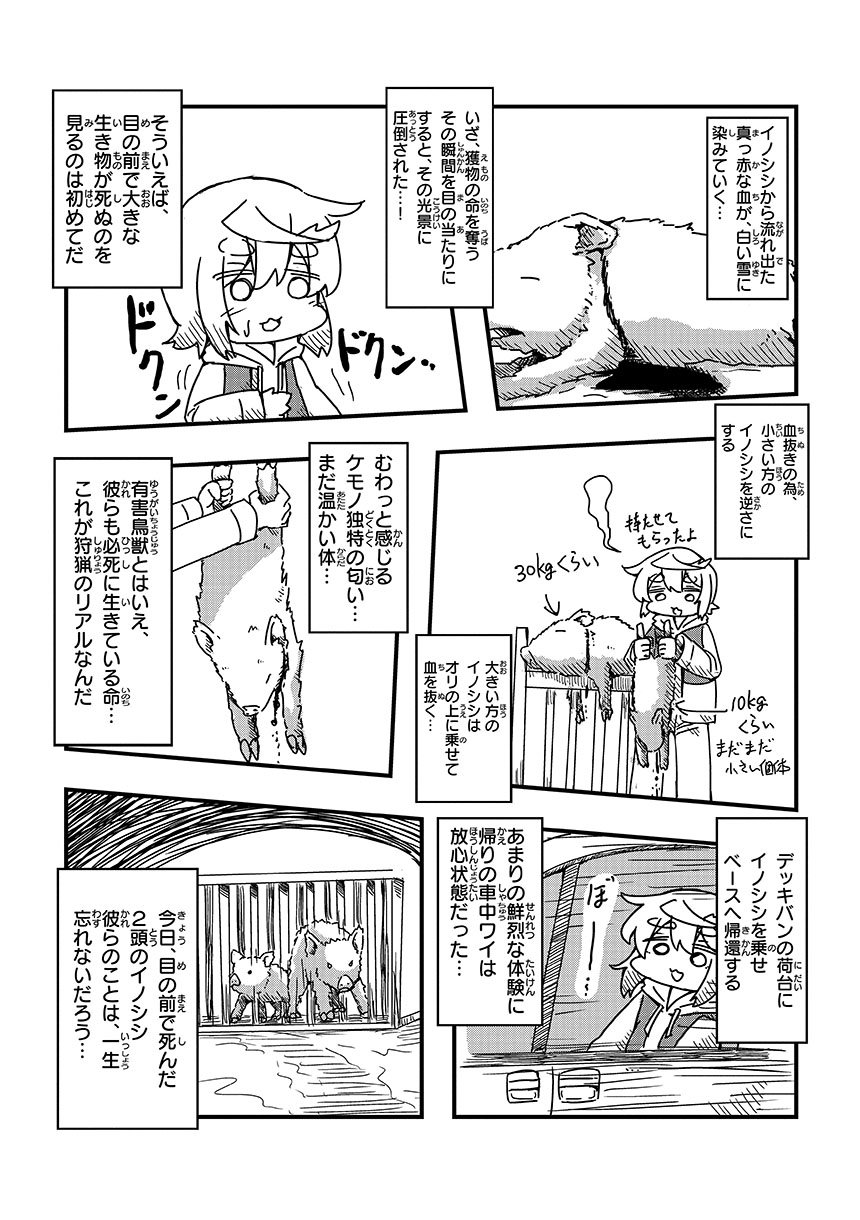 イノシシから流れ出た
真っ赤な血が、白い雪に
染みていく…
いざ、獲物の命を奪う
その瞬間を目の当たりに
すると、その光景に
圧倒された…！
そういえば、
目の前で大きな
生き物が死ぬのを
見るのは初めてだ
ドクン
ドクン…
血抜きの為、
小さい方の
イノシシを逆さに
する
持たせて
もらったよ
30kgくらい
10kg
くらい
まだまだ
小さい個体
大きい方の
イノシシは
オリの上に乗せて
血を抜く…
むわっと感じる
ケモノ独特の匂い…
まだ温かい体…
有害鳥獣とはいえ、
彼らも必死に生きている命…
これが狩猟のリアルなんだ
デッキバンの荷台に
イノシシを乗せ
ベースへ帰還する
ぼーっ…
あまりの鮮烈な体験に
帰りの車中ワイは
放心状態だった…
今日、目の前で死んだ
2頭のイノシシ
彼らのことは、一生
忘れないだろう…